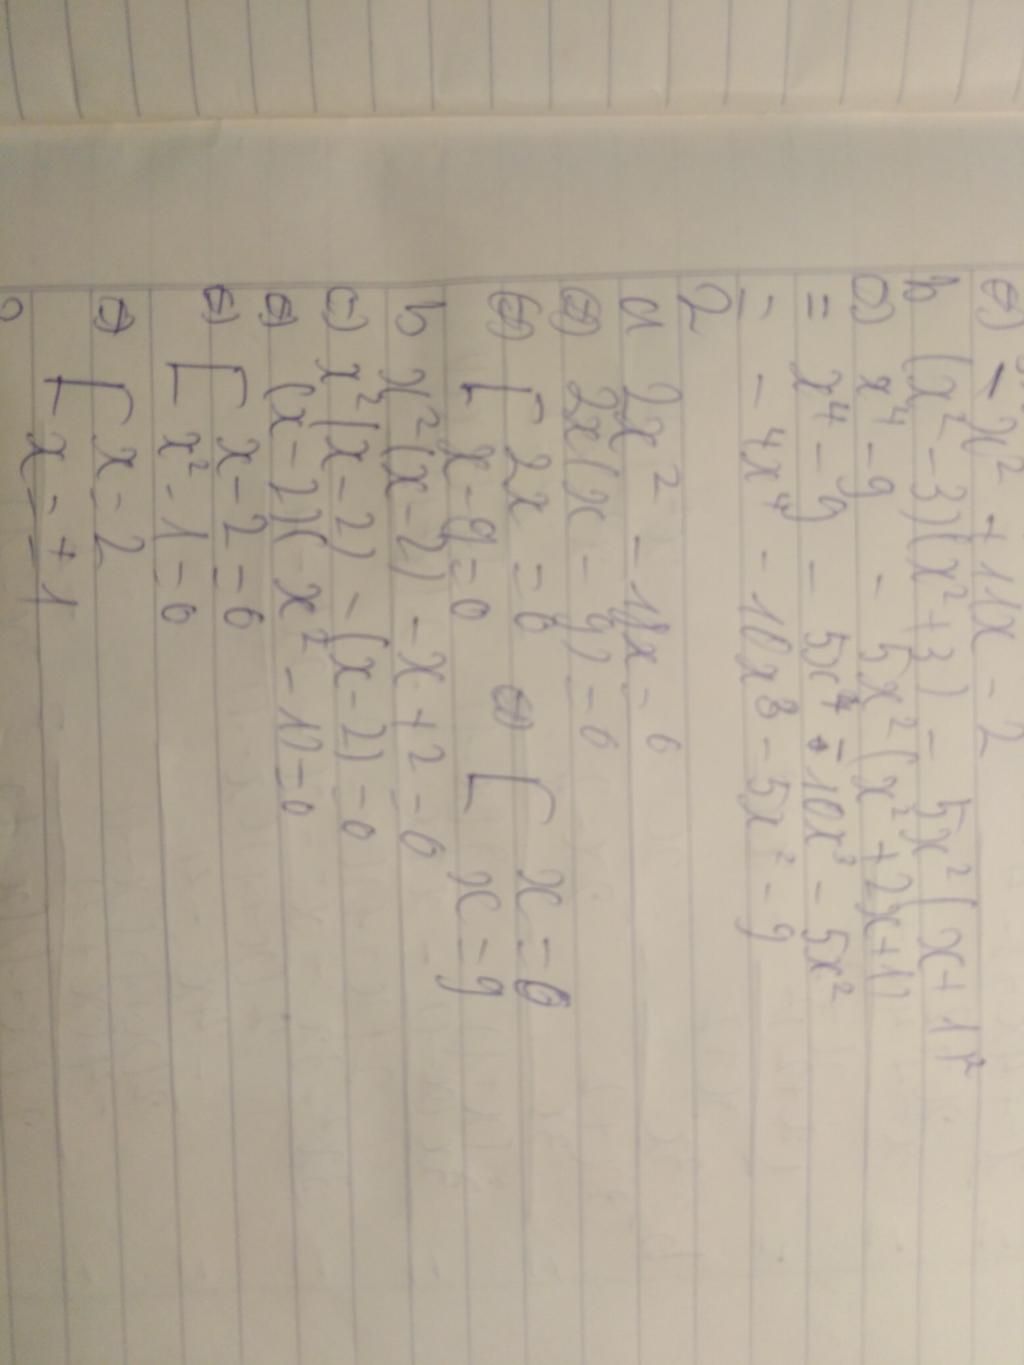 ⇔ - x² + 11x - 2
b (x² - 3)(x² + 3) - 5x²(x + 1)²
⇔ x⁴ - 9 - 5x²(x² + 2x + 1)
= x⁴ - 9 - 5x⁴ - 10x³ - 5x²
= - 4x⁴ - 10x³ - 5x² - 9
2
a 2x² - 18x = 0
⇔ 2x(x - 9) = 0
⇔ [ 2x = 0 ⇔ [ x = 0
x - 9 = 0 x = 9
b x²(x - 2) - x + 2 = 0
⇔ x²(x - 2) - (x - 2) = 0
⇔ (x - 2)(x² - 1) = 0
⇔ [ x - 2 = 0
x² - 1 = 0
⇔ [ x = 2
x = ± 1